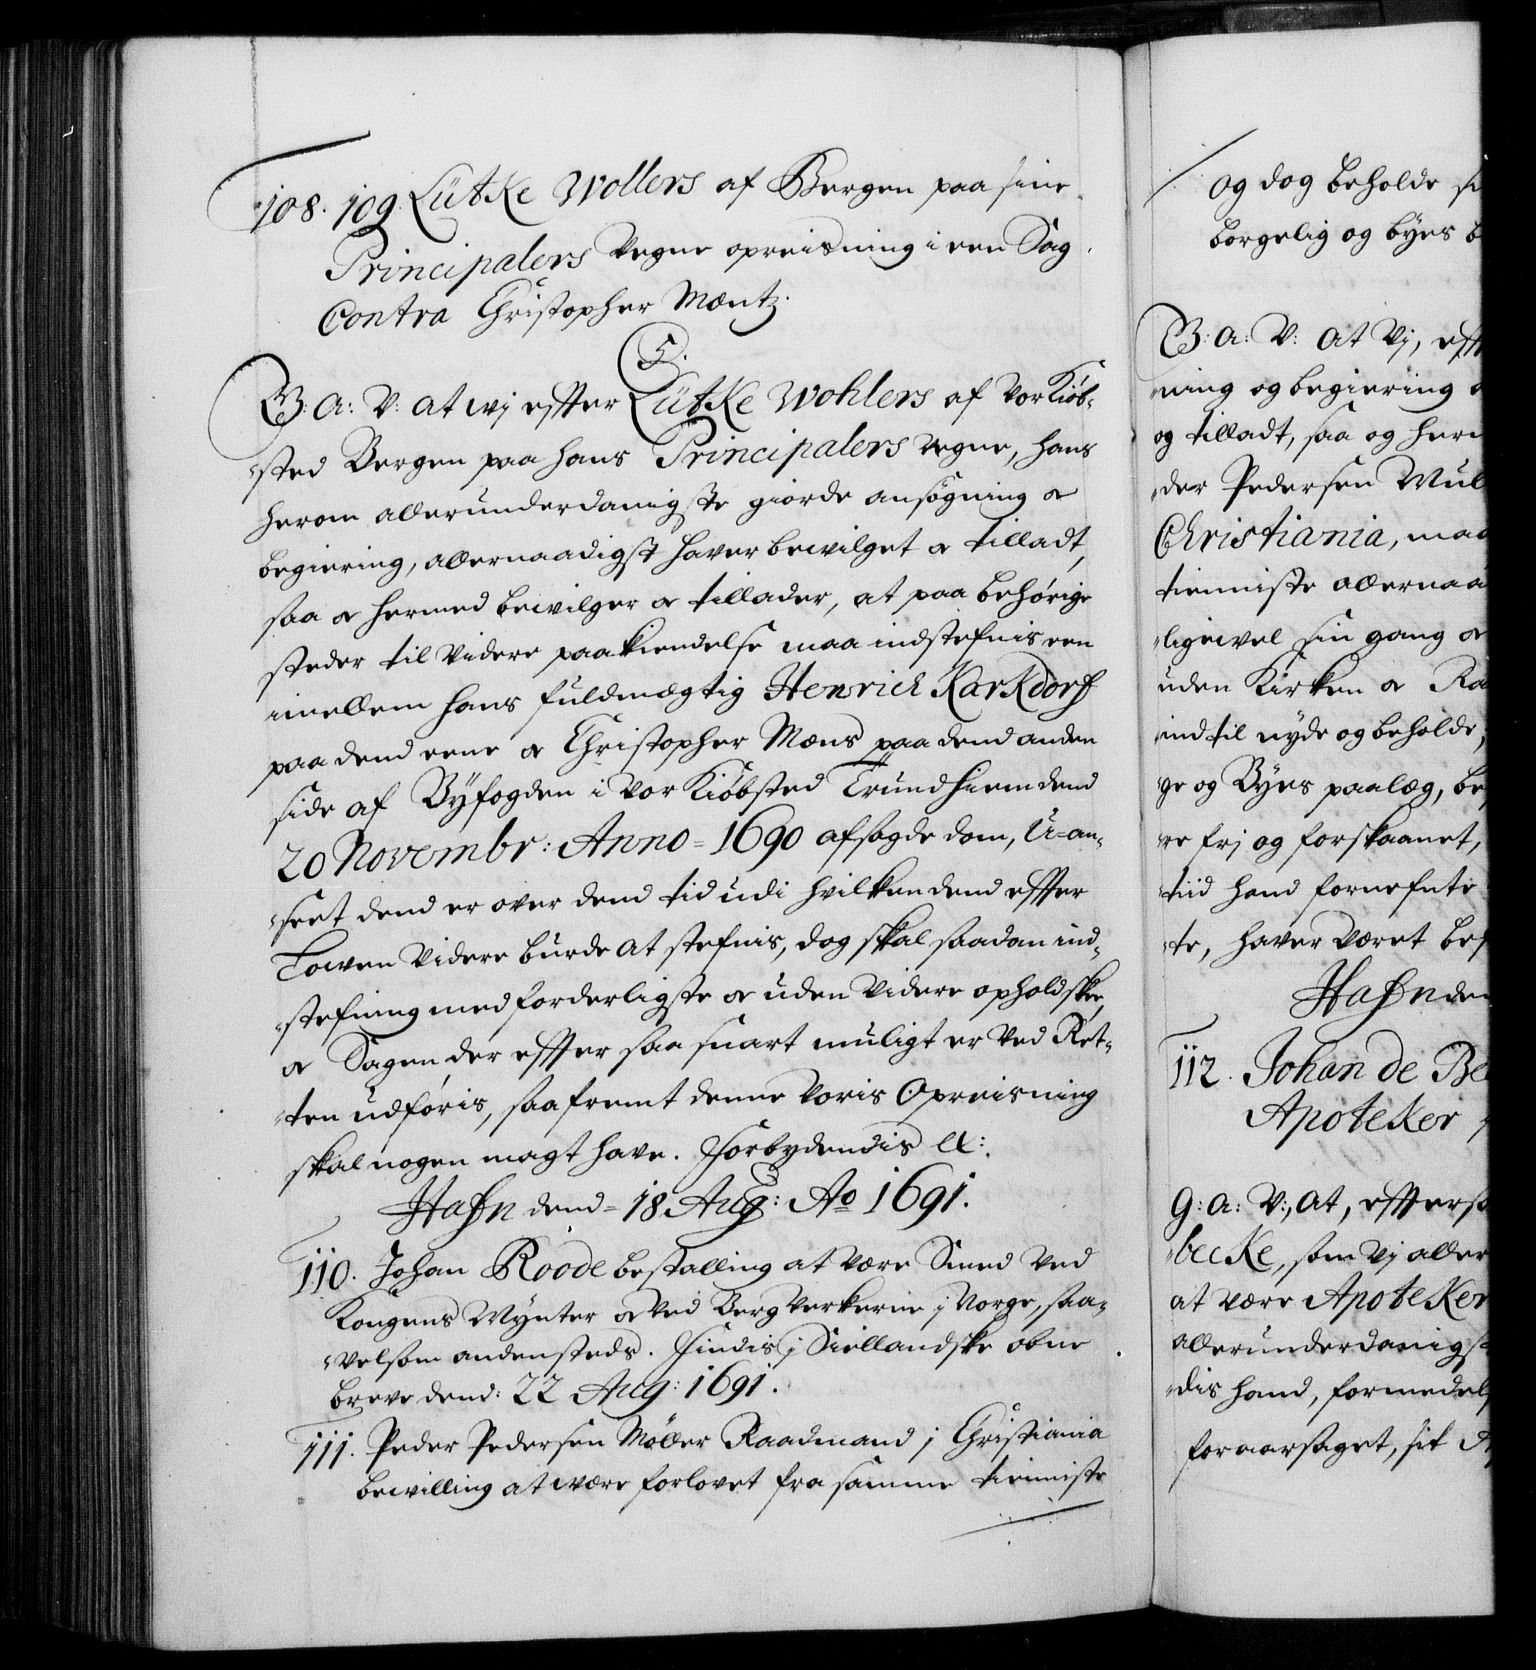 108. 109 Lütke Wollers af Bergen paa sine
Principalers Vegne opreisning i een Sag
Contra Christopher Mæntz.
5.
G: A: V: at wj effter Lütke Wohlers af Vor Kiøb-
sted Bergen paa hans Principalers vegne, hans
herom allerunderdanigste giorde ansøgning &
begiering, allernaadigst haver bevilget & tilladt,
saa & hermed bevilger & tillader, at paa behørige
steder til Videre paakiendelse maa indstefnis een
imellem hans fuldmægtig Henrich Karkdorf
paa dend eene & Christopher Mæns paa dend anden
side af Byfogden i Vor Kiøbsted Trundhiem dend
20 Novembr: Anno= 1690 afsagde dom, U-an-
seet dend er over dend tid udi hvilken dend effter
Lowen Videre burde at stefnis, dog skal saadan ind-
stefning med forderligste & uden Videre ophold skee,
& Sagen der effter saa snart muligt er Ved Ret-
ten udføris, saafremt denne Voris Opreisning
skal nogen magt have. Forbydendis etc:
Hafn dend= 18 Aug: Ao 1691.
110. Johan Roode bestalling at være Smed Ved
Kongens Mynter & Ved Berg Verkerne j Norge, saa-
velsom andensteds. Findis j Siellandske obne
breve dend: 22 Aug: 1691.
111. Peder Pedersen Møller Raadmand j Christiania
bevilling at være forlovet fra samme tienniste
og dog beholde
borgelig og byes
G: A: V: at Vj,
ning og begiering
og tilladt, saa og
der Pedersen
Christiania,
tienniste
ligevel sin gang &
uden Kirken &
indtil nyde og beholde,
ge og Byes paalæg,
re frj og forskaanet,
tiid hand fornefnte
te, haver været
Hafn
112. Johan de
Apoteker
G: A: V:, At,
becke, som Vj
at være Apoteker
dis hand,
foraarsaget, sit